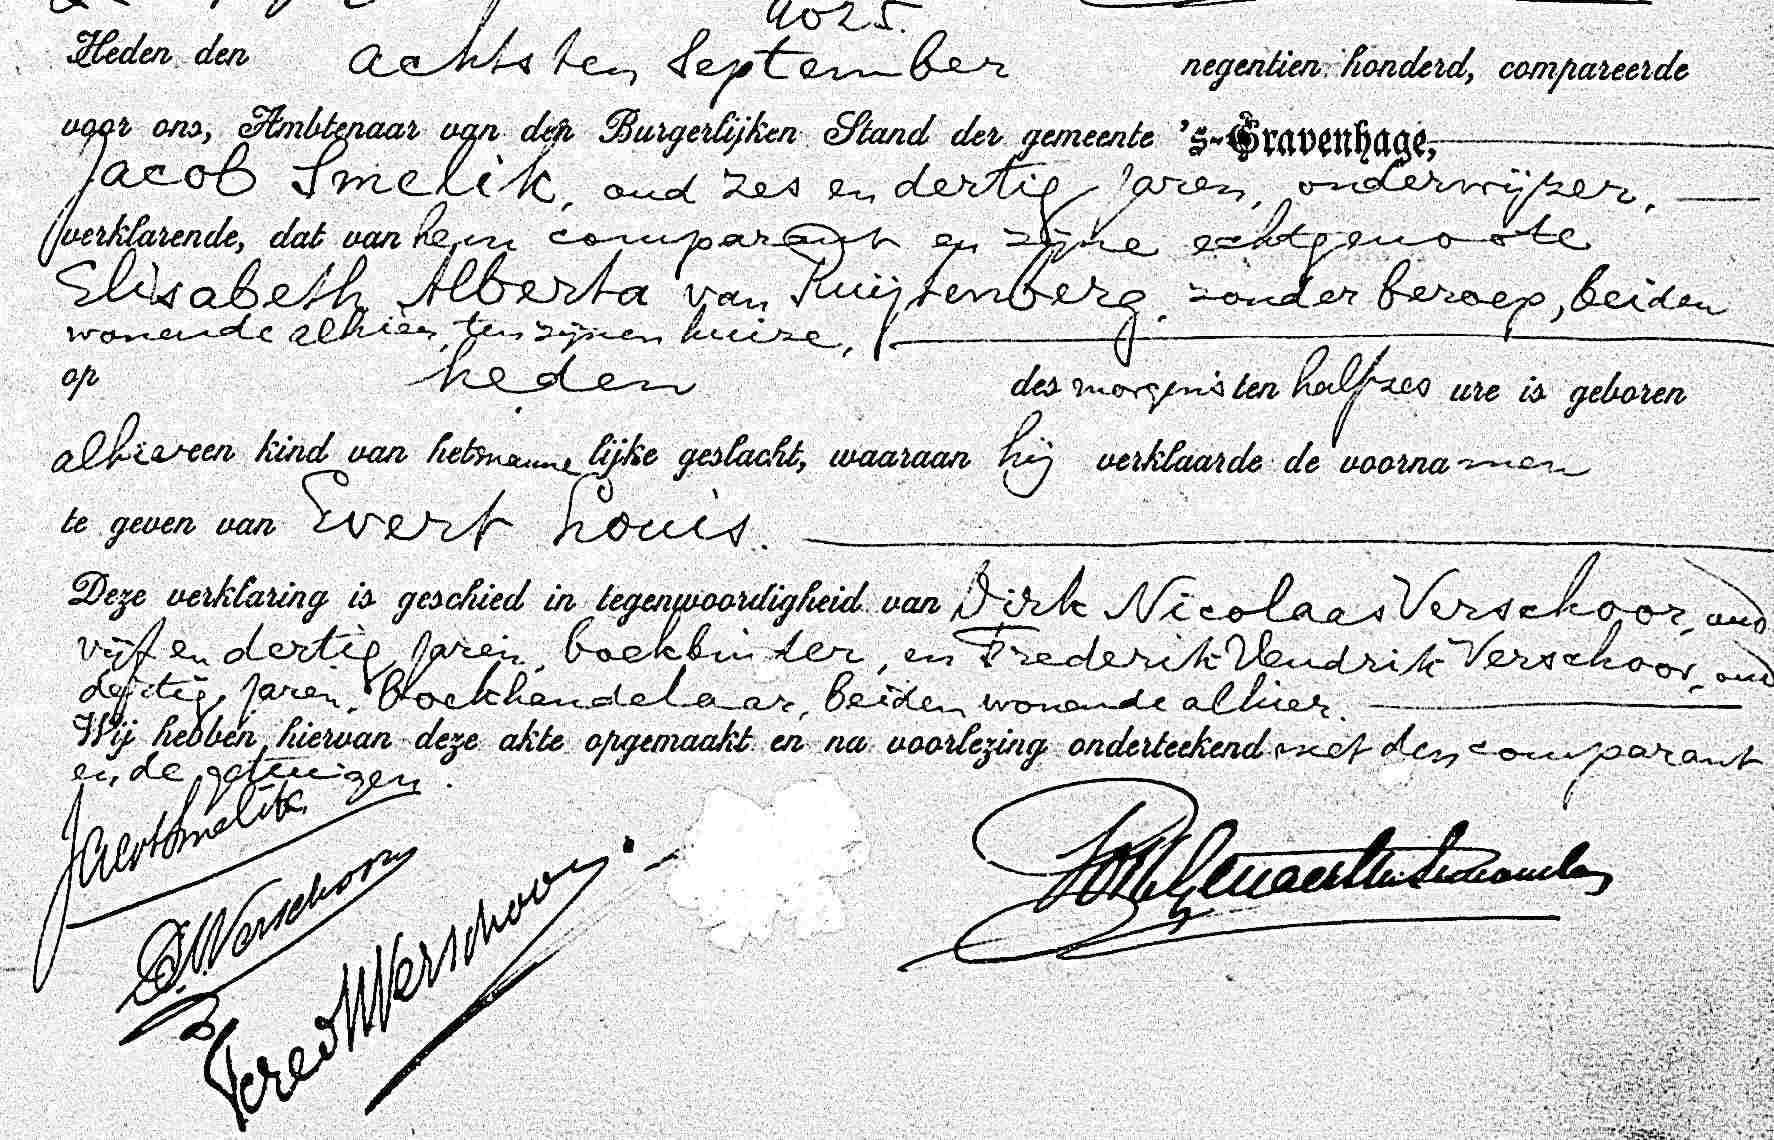 4025.
Heden den achtsten September negentien honderd, compareerde
voor ons, Ambtenaar van den Burgerlijken Stand der gemeente 's-Gravenhage,
Jacob Smelik, oud zes en dertig jaren, onderwijzer,
verklarende, dat van hem comparant en zijne echtgenoote
Elisabeth Alberta van Ruijtenberg, zonder beroep, beiden
wonende alhier, ten zijnen huize,
op heden des morgens ten half zes ure is geboren
alhier een kind van het mannelijke geslacht, waaraan hij verklaarde de voornamen
te geven van Evert Louis.
Deze verklaring is geschied in tegenwoordigheid van Dirk Nicolaas Verschoor, oud
vijf en dertig jaren, boekbinder, en Frederik Hendrik Verschoor, oud
dertig jaren, boekhandelaar, beiden wonende alhier.
Wij hebben hiervan deze akte opgemaakt en na voorlezing onderteekend met den comparant
en de getuigen.
Jacob Smelik
D.N. Verschoor
Fred H Verschoor